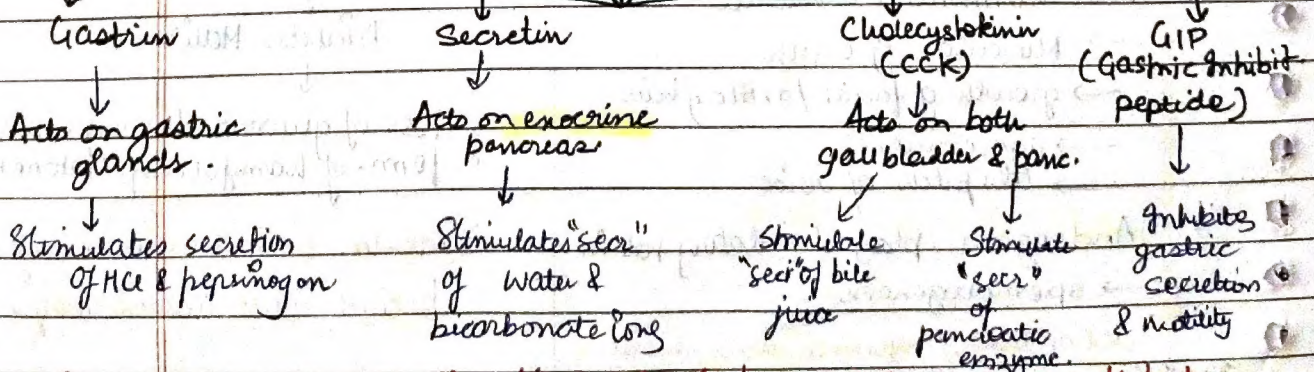 Gastrin
Acts on gastric
glands.
Stimulates secretion
of HCl & pepsinogon
Secretin
Acts on exocrine
pancreas
Stimulates "secr"
of water &
bicarbonate ions
Cholecystokinin
(CCK)
Acts on both
gaubladder & panc.
Stimulate
"secr" of bile
juice
Stimulate
"secr"
of
pancreatic
enzyme.
GIP
(Gastric Inhibit.
peptide)
Inhibites
gastric
secretion
& motility